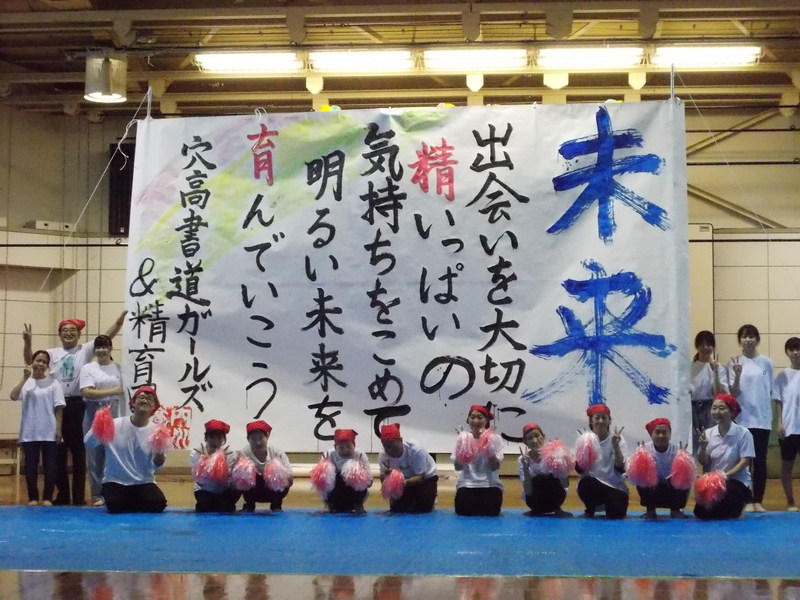 未来
出会いを大切に
精いっぱいの
気持ちをこめて
明るい未来を
育んでいこう
穴高書道ガールズ
&精育